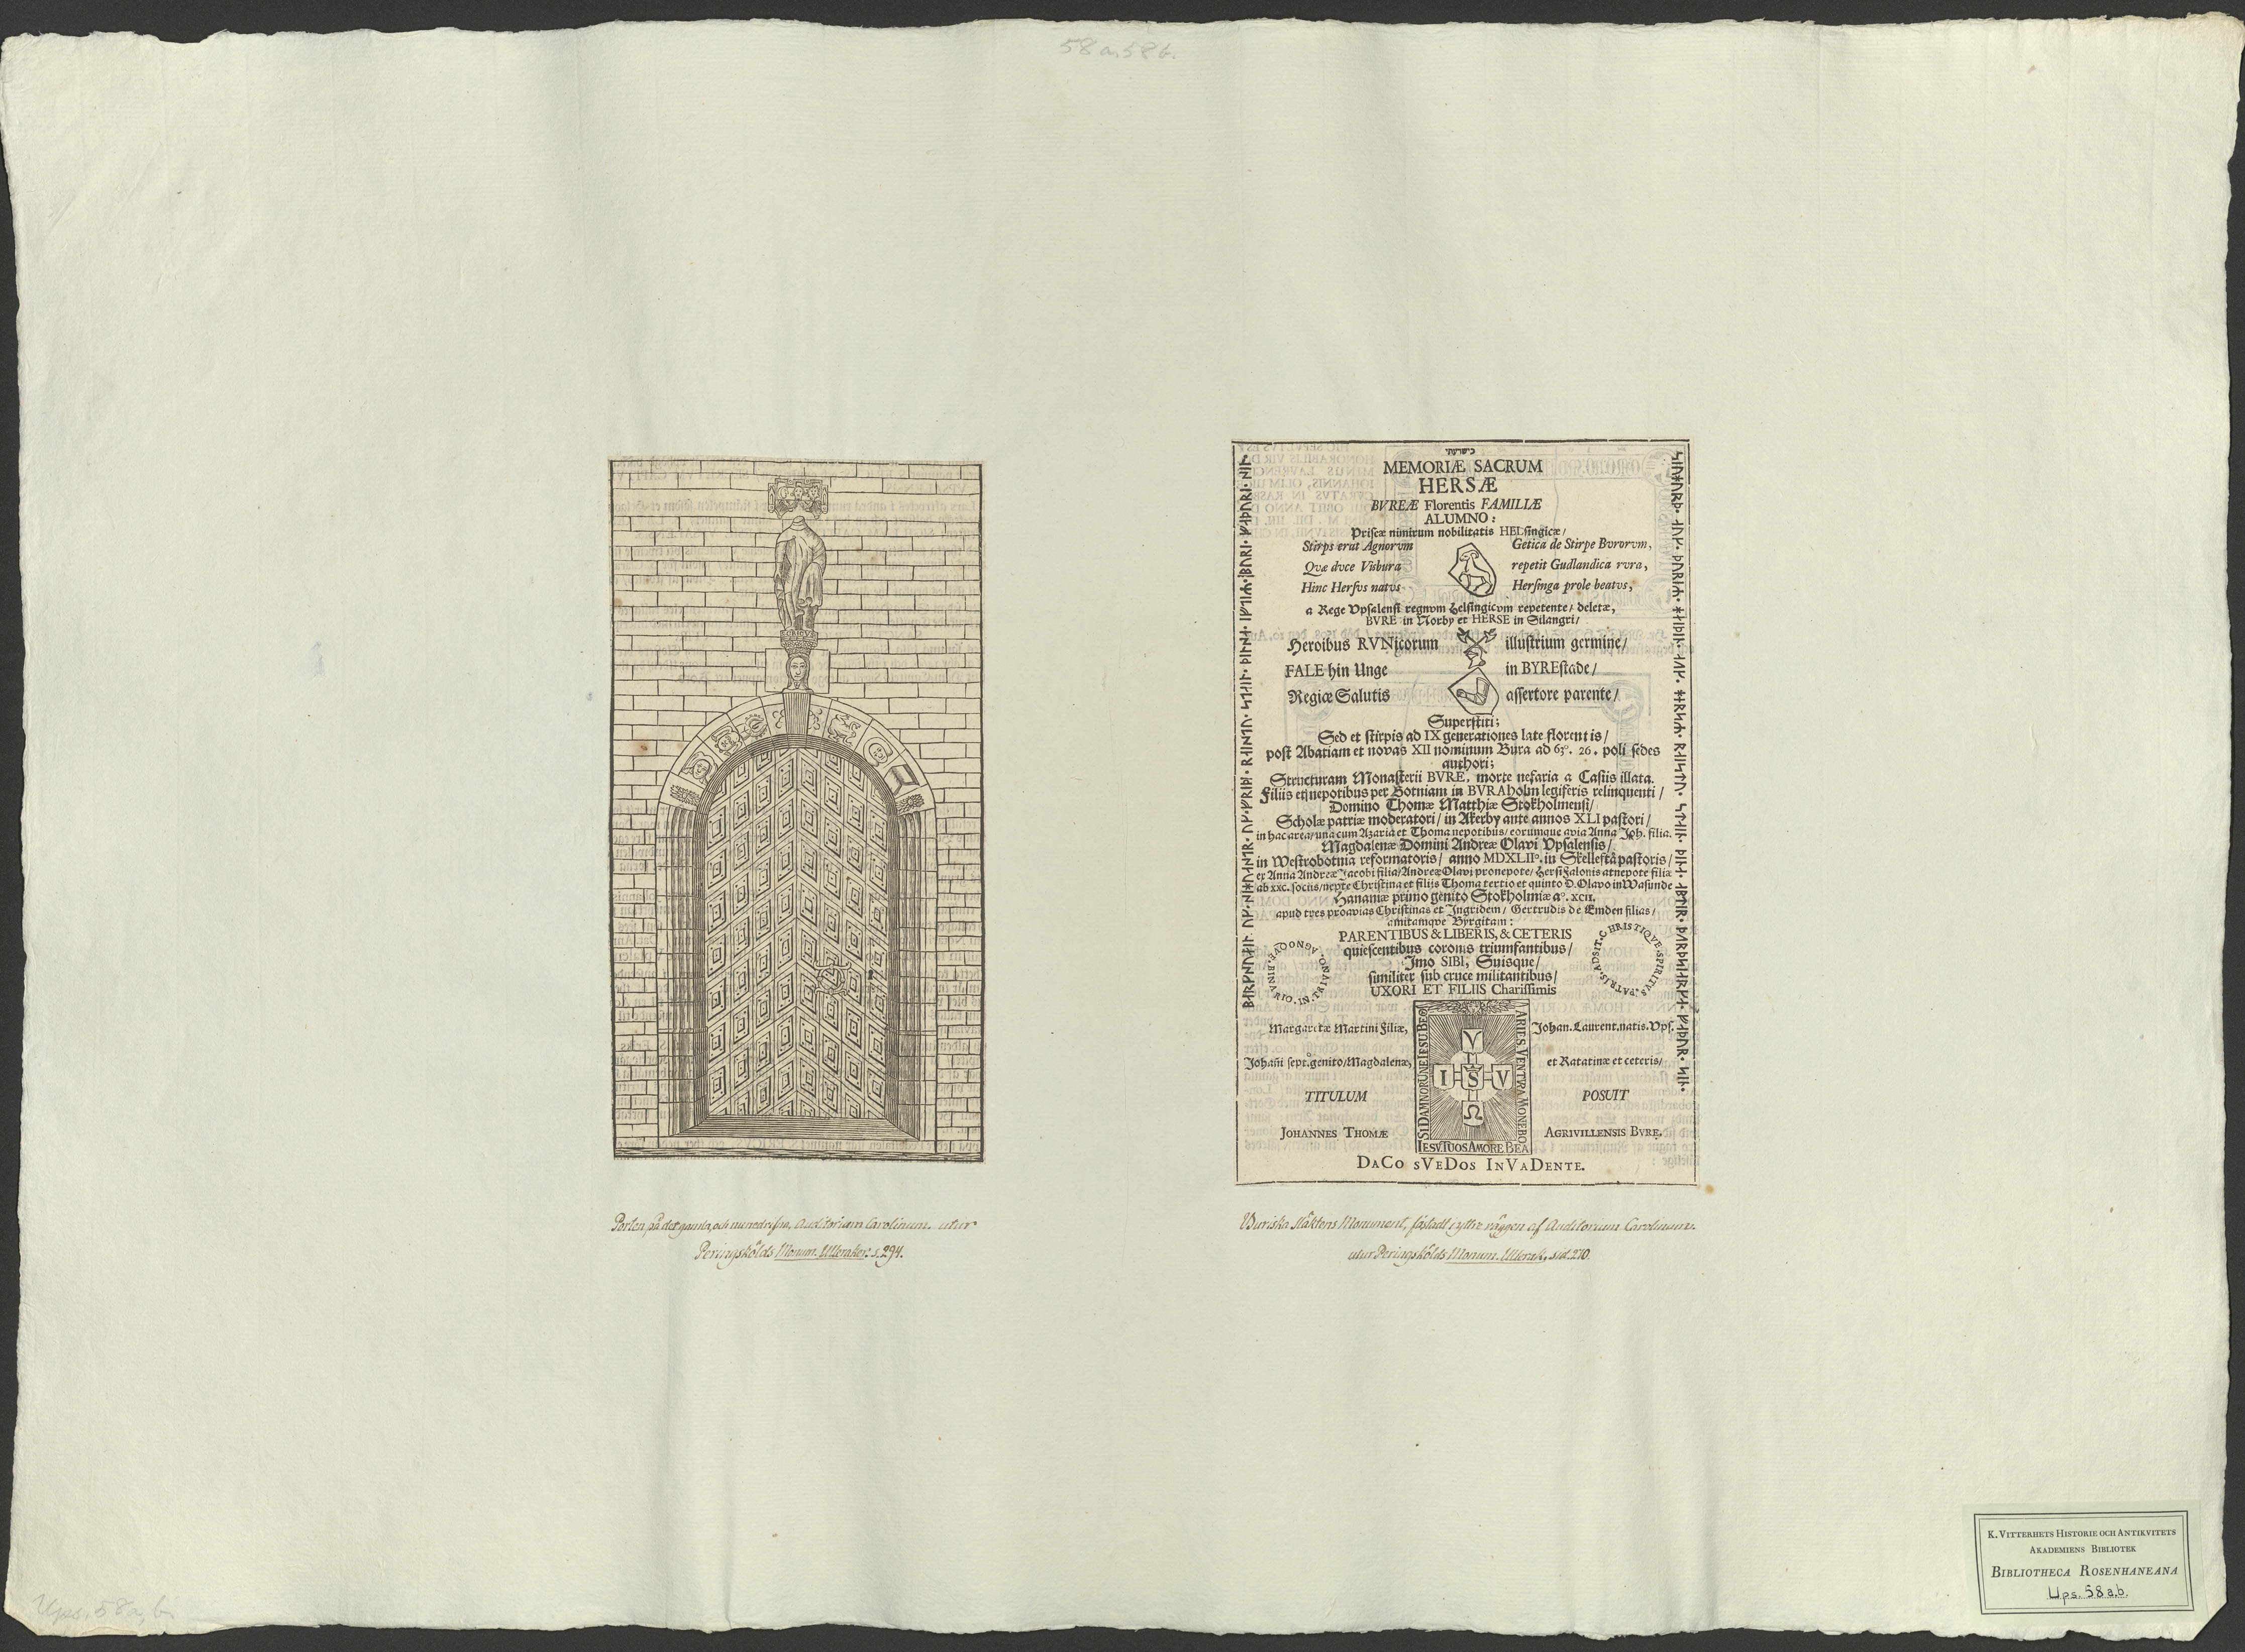 58 a. 58 b.
ERICVS
Porten på det gamla, och nu nedrifne, Auditorium Carolinum. utur
Peringskölds Monum. Ulleraker: s. 294.
MEMORIÆ SACRUM
HERSÆ
BVREÆ Florentis FAMILIÆ
ALUMNO:
Priscæ nimirum nobilitatis HELsingicæ/
Stirps erat Agnorvm Getica de Stirpe Bvrorvm,
Qvæ dvce Visbura repetit Gudlandica rvra,
Hinc Hersvs natvs Hersinga prole beatvs,
a Rege Vpsalensi regnvm Helsingicvm repetente/ deletæ,
BVRE in Norby et HERSE in Silangri/
Heroibus RVNicorum illustrium germine/
FALE hin Unge in BYREstade/
Regiæ Salutis assertore parente/
Superstiti;
Sed et stirpis ad IX generationes late florentis/
post Abatiam et novas XII nominum Bura ad 63°. 26. poli sedes
authori;
Structuram Monasterii BVRE, morte nefaria a Casiis illata.
Filiis et nepotibus per Botniam in BVRAholm legiferis relinquenti/
Domino Thomæ Matthiæ Stokholmensi/
Scholæ patriæ moderatori/ in Akerby ante annos XLI pastori/
in hac area/ una cum Azaria et Thoma nepotibus/ eorumque avia Anna Joh. filia.
Magdalenæ Domini Andreæ Olavi Vpsalensis/
in Westrobotnia reformatoris/ anno MDXLII°. in Skelleftå pastoris/
ex Anna Andreæ Jacobi filia/ Andreæ Olavi pronepote/ Hersi Falonis atnepote filiæ
ab xxc. sociis/ nepte Christina et filiis Thoma tertio et quinto D. Olavo in Wasunde
Hanamæ primo genito Stokholmiæ a°. xcii.
apud tres proavias Christinas et Ingridem/ Gertrudis de Emden filias/
amitamqve Byrgitam:
PARENTIBUS & LIBERIS, & CETERIS
quiescentibus coronis triumfantibus/
Imo SIBI, Suisque/
similiter sub cruce militantibus/
UXORI ET FILIIS Charissimis
CHRISTIQVE.SPIRITVS.PATRIS.ADSIT.
Margaretæ Martini Filiæ, Johan. Laurent. natis. Vps.
Johañi sept.genito/ Magdalenæ, et Ratatinæ et ceteris/
TITULUM POSUIT
JOHANNES THOMÆ AGRIVILLENSIS BVRE.
SI DAMNOR UNE IESU BEO
ARIES VENTVRA MONEBO
V
I S V
Ω
IESV.TUOS AMORE BEA
DACO SVEDOS INVADENTE.
Buriska Släktens Monument, fästadt i yttre väggen af Auditorium Carolinum.
utur Peringskölds Monum. Ullerak, sid. 210.
K. VITTERHETS HISTORIE OCH ANTIKVITETS
AKADEMIENS BIBLIOTEK
BIBLIOTHECA ROSENHANEANA
Ups. 58 a.b.
Ups. 58 a, b.